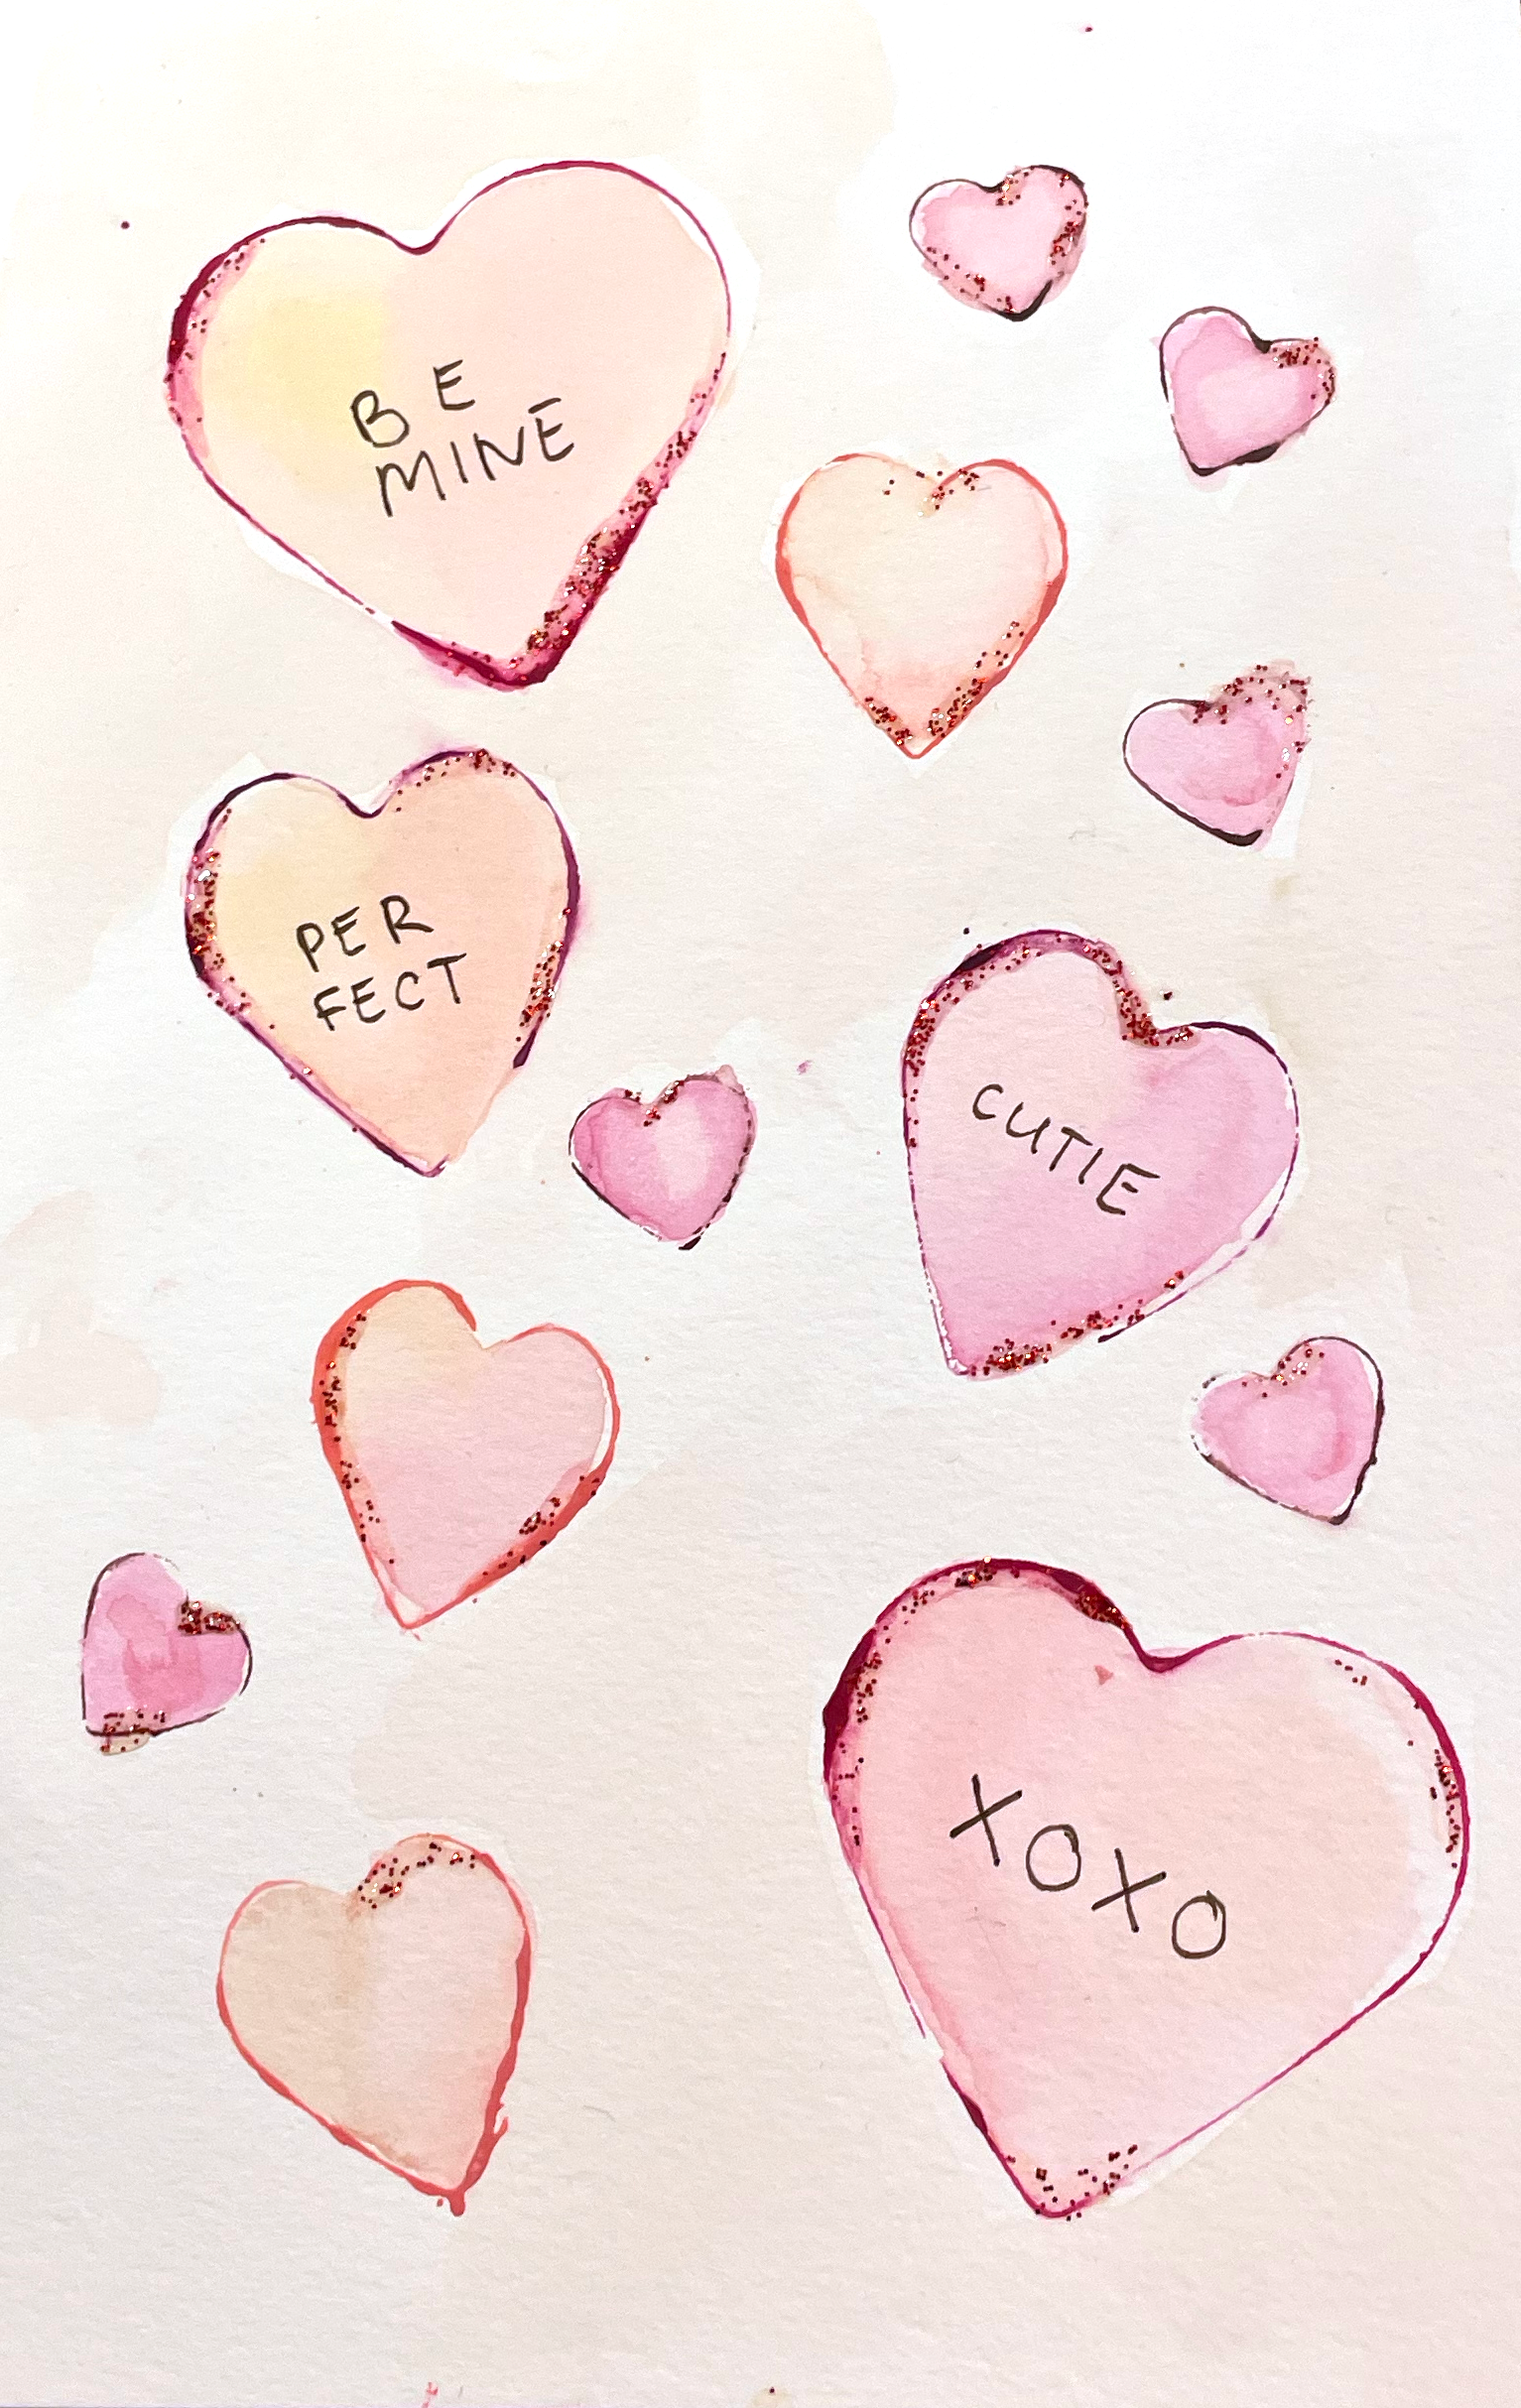 BE
MINE
PER
FECT
CUTIE
XOXO